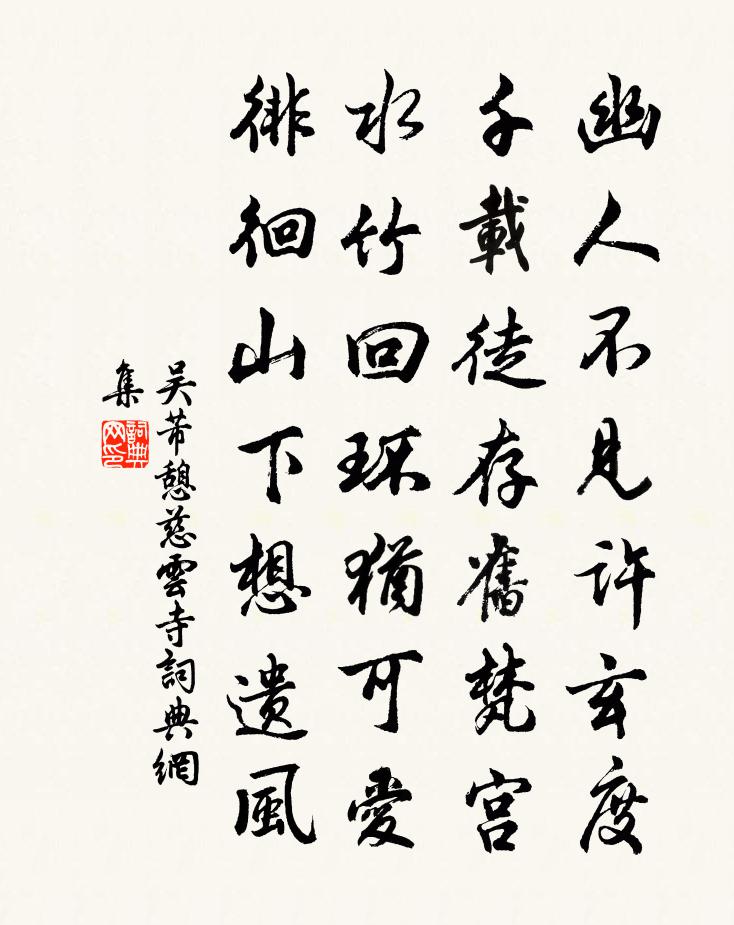 幽人不見許玄度
千載徒存舊梵宮
水竹回环猶可愛
徘徊山下想遺風
吴芾憩慈雲寺詞典網
集
詞典
网印